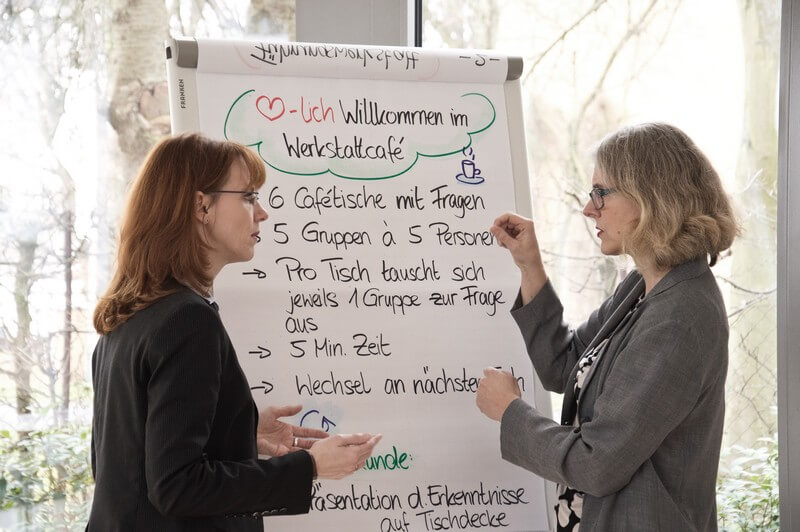 -2-
♡-lich Willkommen im
Werkstattcafé
FRANKEN
6 Cafétische mit Fragen
5 Gruppen à 5 Personen
→ Pro Tisch tauscht sich
jeweils 1 Gruppe zur Frage
aus
→ 5 Min. Zeit
→ Wechsel an nächsten
unde:
Präsentation d. Erkenntnisse
auf Tischdecke